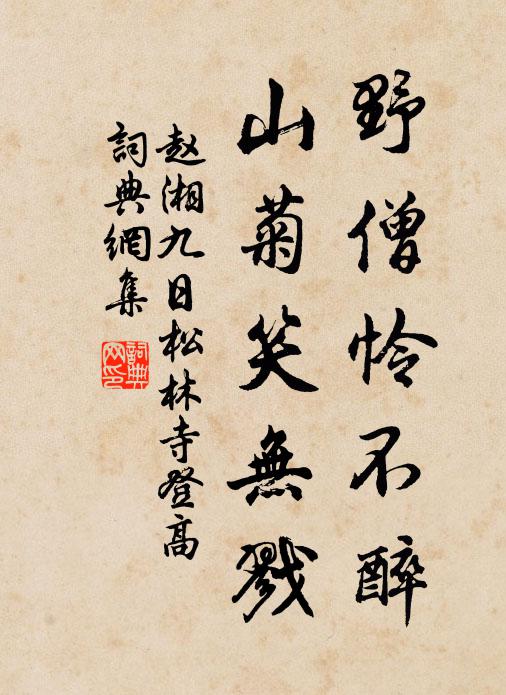 野僧怜不醉
山菊笑無戮
赵湘九日松林寺登高
詞典網集
詞典網印